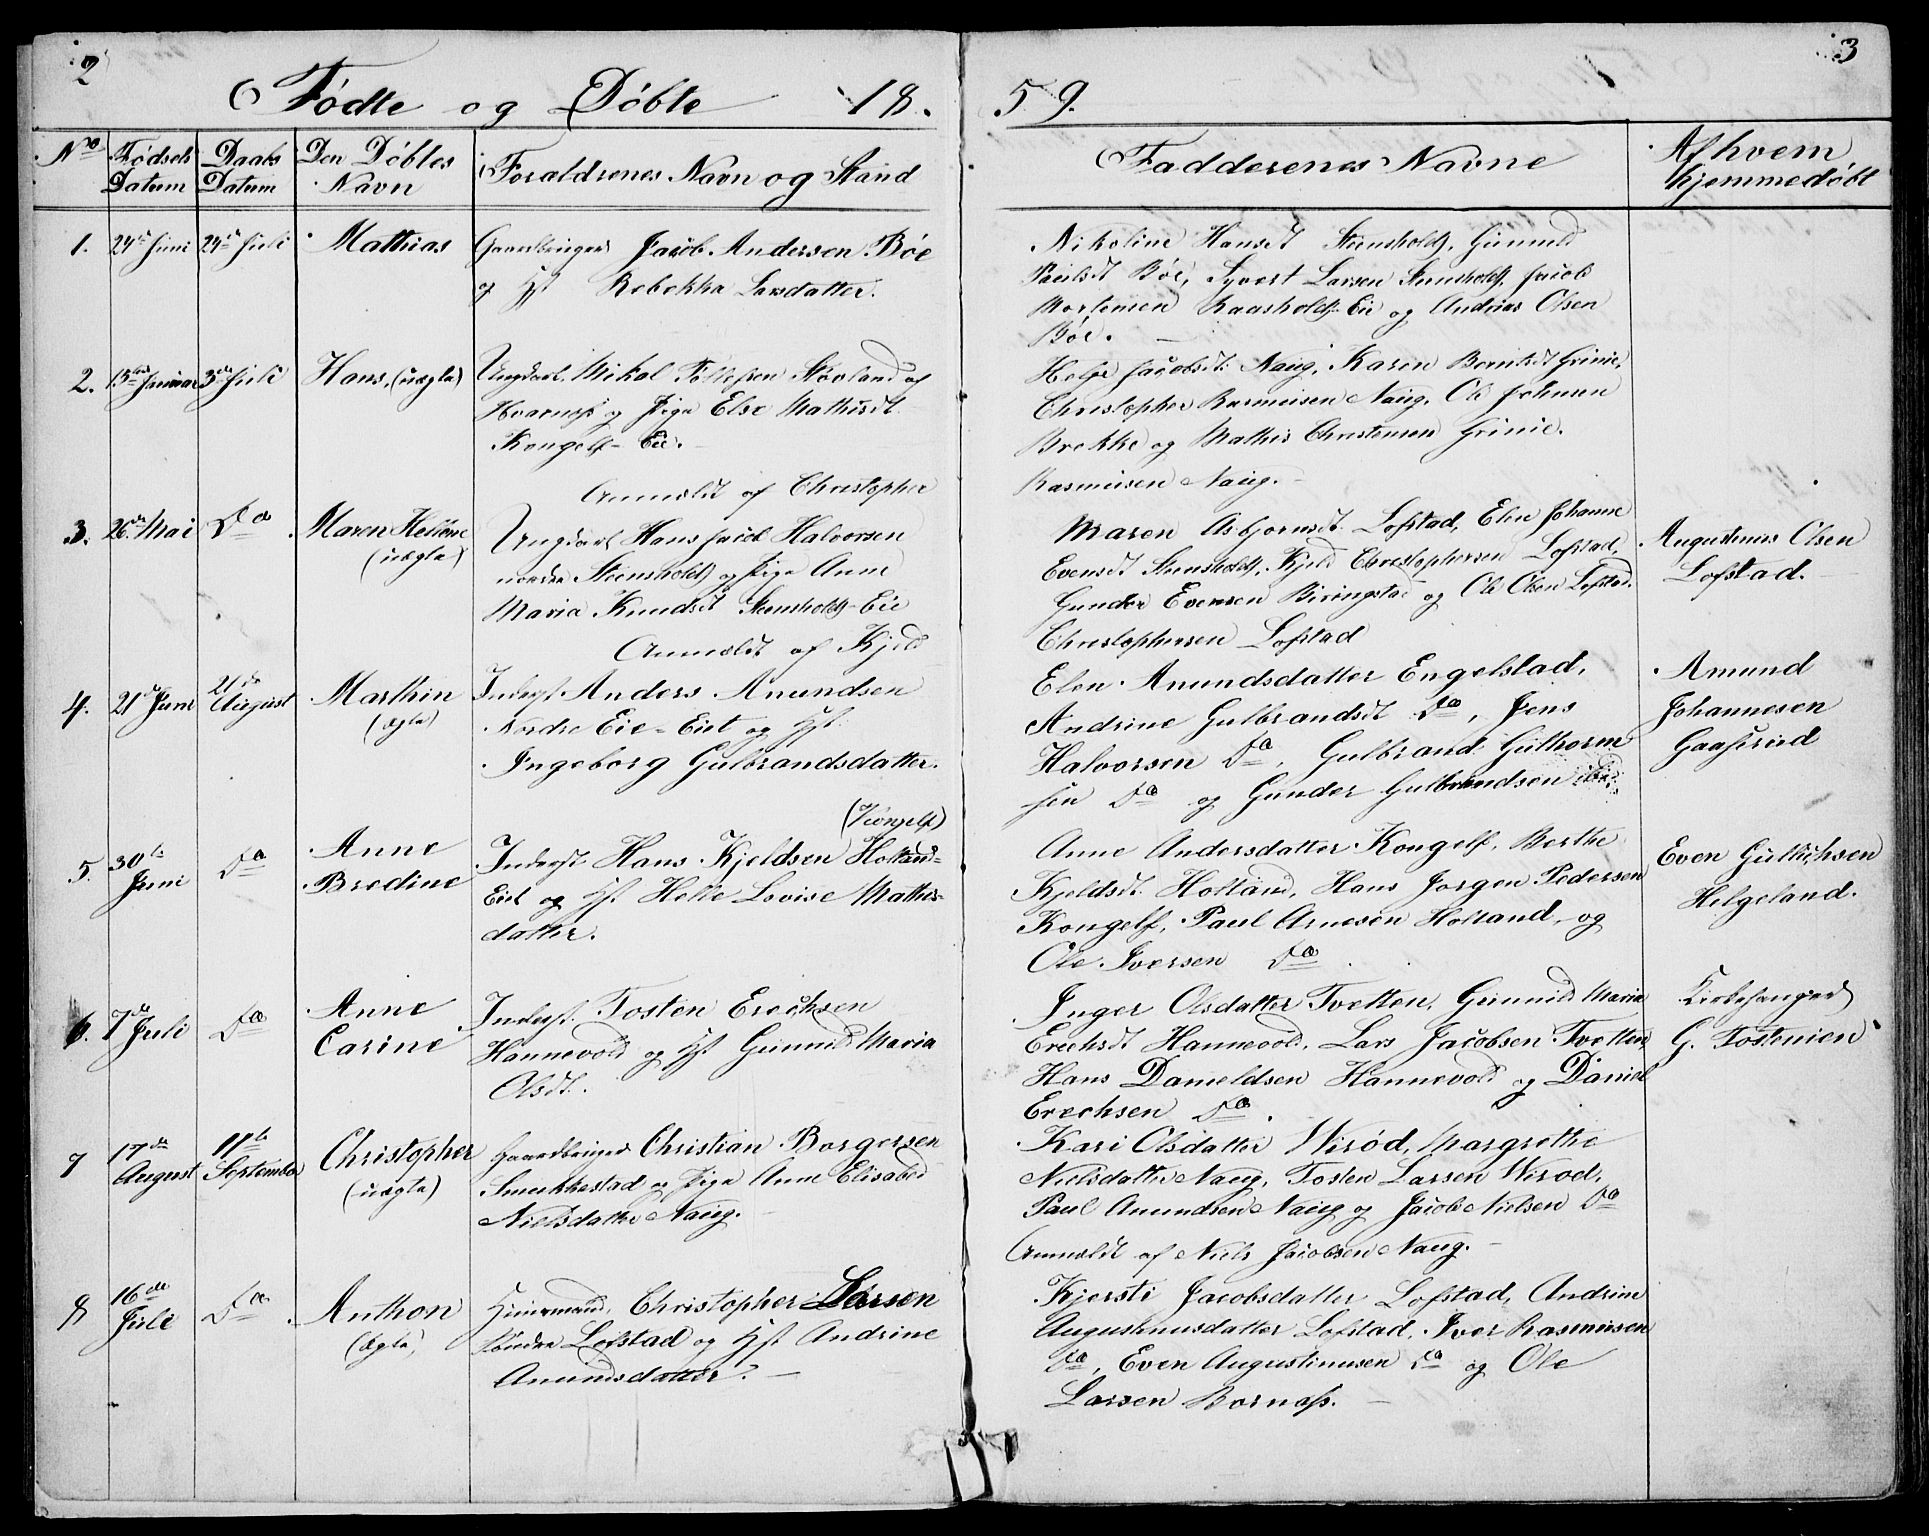 2
Fødte og Døbte 18.
59.
3
No
Fødsels Datum
Daabs Datum
Den Døbtes Navn
Forældrenes Navn og Stand
Faddernes Navne
Af hvem hjemmedøbt
1.
24de Juni
24de Juli
Mathias
Gaardbruger Jacob Andersen Bøe
og Hst Rebekka Larsdatter.
Nikoline Hansdt Steensholdt, Gunnild
Paulsdt Bøe, Syvert Larsen Steensholdt, Jacob
Mortensen Raasholdt Eie og Andreas Olsen
Bøe.
2.
15de Januar
3de Juli
Hans, (uægte)
Ungkarl. Mikal Tollefsen Støvland af
Hvarnæs og Pige Else Mathisdt
Kongelf-Eie.
Anmeldt af Christopher
Helge Jacobsdt Naug, Karen Berntsdt Grinie,
Christopher Rasmusen Naug, Ole Johnsen
Brekke og Mathis Christensen Grinie.
Rasmusen Naug.
3.
26de Mai
Do
Maren Hellene
(uægte)
Ungkarl Hans Jacob Halvorsen
nordre Steensholdt og Pige Anne
Maria Knudsdt Steensholdt-Eie
Anmeldt af Kjeld
Maren Asbjørnsdt Lofstad, Elen Johanne
Evensdt Steensholdt, Kjeld Christophersen Lofstad,
Gunder Evensen Biringstad og Ole Olsen Lofstad.
Christophersen Lofstad
Augustinus Olsen
Lofstad.
4.
21de Juni
21de August
Marthin
(ægte)
Inderst Anders Amundsen
Nordre Eie-Eiet og Hst
Ingeborg Gulbrandsdatter.
Elen Amundsdatter Engelstad,
Andrine Gulbrandsdt Do, Jens
Halvorsen Do, Gulbrand Guthorm
sen Do og Gunder Gulbrandsen ibid.
Amund
Johannesen
Gaaserud
5.
30te Juni
Do
Anne
Bredine
(Kongelf)
Inderst Hans Kjeldsen Holtand-
Eiet og Hst Helle Lovise Mathis-
datter.
Anne Andersdatter Kongelf, Berthe
Kjeldsdt Holtand, Hans Jørgen Pedersen
Kongelf, Paul Arnesen Holtand, og
Ole Iversen Do.
Even Gulliksen
Helgeland.
6.
7de Juli
Do
Anne
Carine
Inderst Tosten Erichsen
Hannevold og Hst Gunnild Maria
Olsdt.
Inger Olsdatter Tvetten, Gunnild Maria
Erichsdt Hannevold, Lars Jacobsen Tvetten,
Hans Danieldsen Hannevold og Daniel
Erechsen Do.
Kirkesanger
G. Tostensen
7
17de August
11te September
Christopher
(uægte)
Gaardbruger Christian Borgersen
Smukkestad og Pige Anne Elisabed
Nielsdatter Naug.
Kari Olsdatter Wirød, Margrethe
Nielsdatter Naug, Tosten Larsen Wirød,
Paul Amundsen Naug og Jacob Nielsen Do
Anmeldt af Niels Jacobsen Naug.
8
16de Juli
Do.
Anthon
(ægte)
Huusmand, Christopher Larsen
søndre Lofstad og Hst Andrine
Amundsdatter.
Kjersti Jacobsdatter Lofstad, Andrine
Augustinusdatter Lofstad, Iver Rasmusen
Do, Even Augustinusen Do og Ole
Larsen Bornæs.